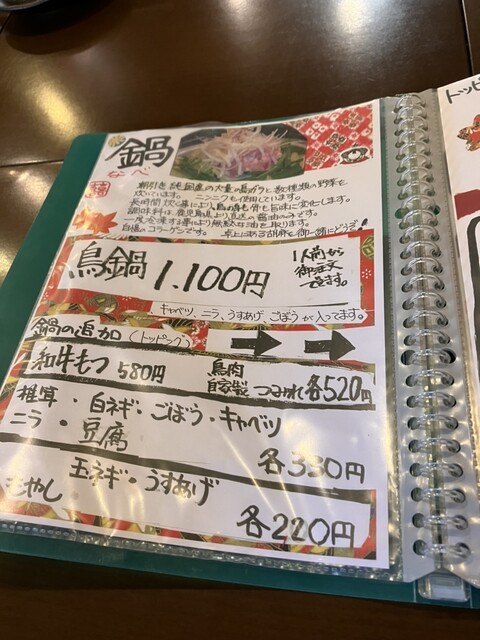 鍋
なべ
朝引き純国産の大量の鳥ガラと数種類の野菜を
炊いています。ニンニクも使用しています。
長時間炊く事により鳥の身も骨も旨味に変化します。
調味料は鹿児島県より直送の醤油のみです。
一度冷凍する事により無駄な油を取ります。
自慢のコラーゲンです。卓上にある胡麻と御一緒にどうぞ!
鳥鍋 1.100円
1人前から
御注文
できます。
キャベツ、ニラ、うすあげ、ごぼうが入ってます。
鍋の追加(トッピング)
和牛もつ 580円
鳥肉
自家製 つみれ 各520円
椎茸・白ネギ・ごぼう・キャベツ
ニラ・豆腐
各330円
玉ネギ・うすあげ
もやし
各220円
トッピ